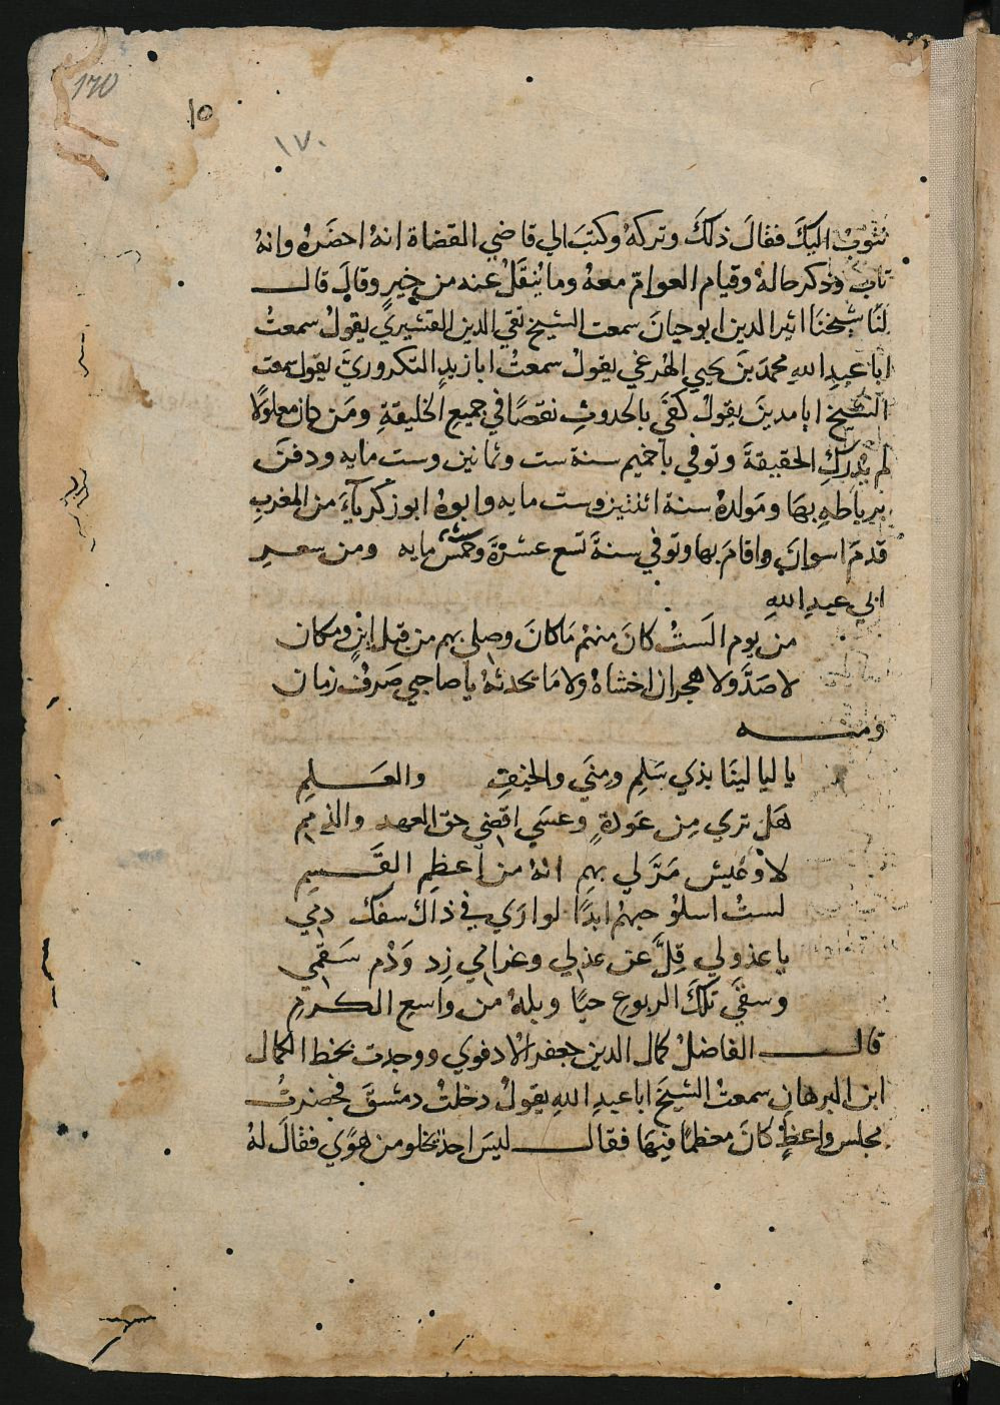 170
١٥
١٧٠
نتوب اليكَ فقالَ ذلكَ وتركهُ وكتبَ الي قاضي القضاة انهُ احضَرهُ وانهُ
تاب وذكر حالهُ وقيام العوامّ معهُ وما يُنقَلُ عنه من خيرٍ وقالَ قال
لنَا شيخنَا اثير الدين ابو حيانَ سمعت الشيخ تقي الدين القشيريَّ يقولُ سمعتُ
ابا عبدِ اللهِ محمدَ بنَ يحيي الهرغي يقولُ سمعتُ ابا زيدٍ التكروريَّ يقولُ سمعت
الشيخ ابا مدينَ يقولُ كفَي بالحدوثِ نقصًا في جميعِ الخليقةِ ومَن كانَ معلولًا
لم يُدركِ الحقيقةَ وتوفي باخميم سنة ست وثمانين وست مايه ودفنَ
برباطهِ بهَا ومَولدهُ سنة اثنتين وست مايه وابوهُ ابو زكريآءَ من المغربِ
قدمَ اسوانَ واقامَ بها وتوفي سنةَ تسع عشرةَ وست مايه ومن شعرِ
ابي عبدِ اللهِ
من يوم الَستُ كانَ منهمْ مَا كانَ وصلي بهم من قبل اينٍ ومكان
لا صَدَّ ولا هجران اخشاهُ ولا مَا يحدثهُ يا صاحبي صَرفُ زمان
ومنه
يا ليالينَا بذي سَلمِ ومِنَي والخيفِ والعَلمِ
هَل تري مِن عَودةٍ وعسَي اقضي حق العهد والذممِ
لا وعَيش مَرَّ لي بهمِ انهُ من اعظمِ القَسمِ
لستُ اسلوُ حبهمْ ابدًا لو ارَي في ذاك سفك دمي
يا عذولي قِلَّ عن عذلي وغرامي زِد وَدُم سَقمي
وسقَي تلكَ الربوعِ حيًا وبلهُ من واسعِ الكرمِ
قال الفاضلُ كمال الدين جعفر الادفوي ووجدت بخط الكمال
ابن البرهانِ سمعتُ الشيخَ ابا عبدِ اللهِ يقولُ دخلتُ دمشقَ فحضرتُ
مجلس واعظٍ كانَ معظمًا فيهَا فقال ليسَ احدٌ يخلو من هوًي فقالَ لهُ